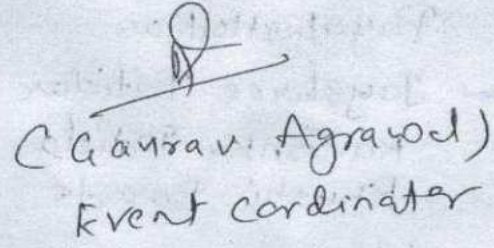 (Gaurav Agrawal)
Event cordinator